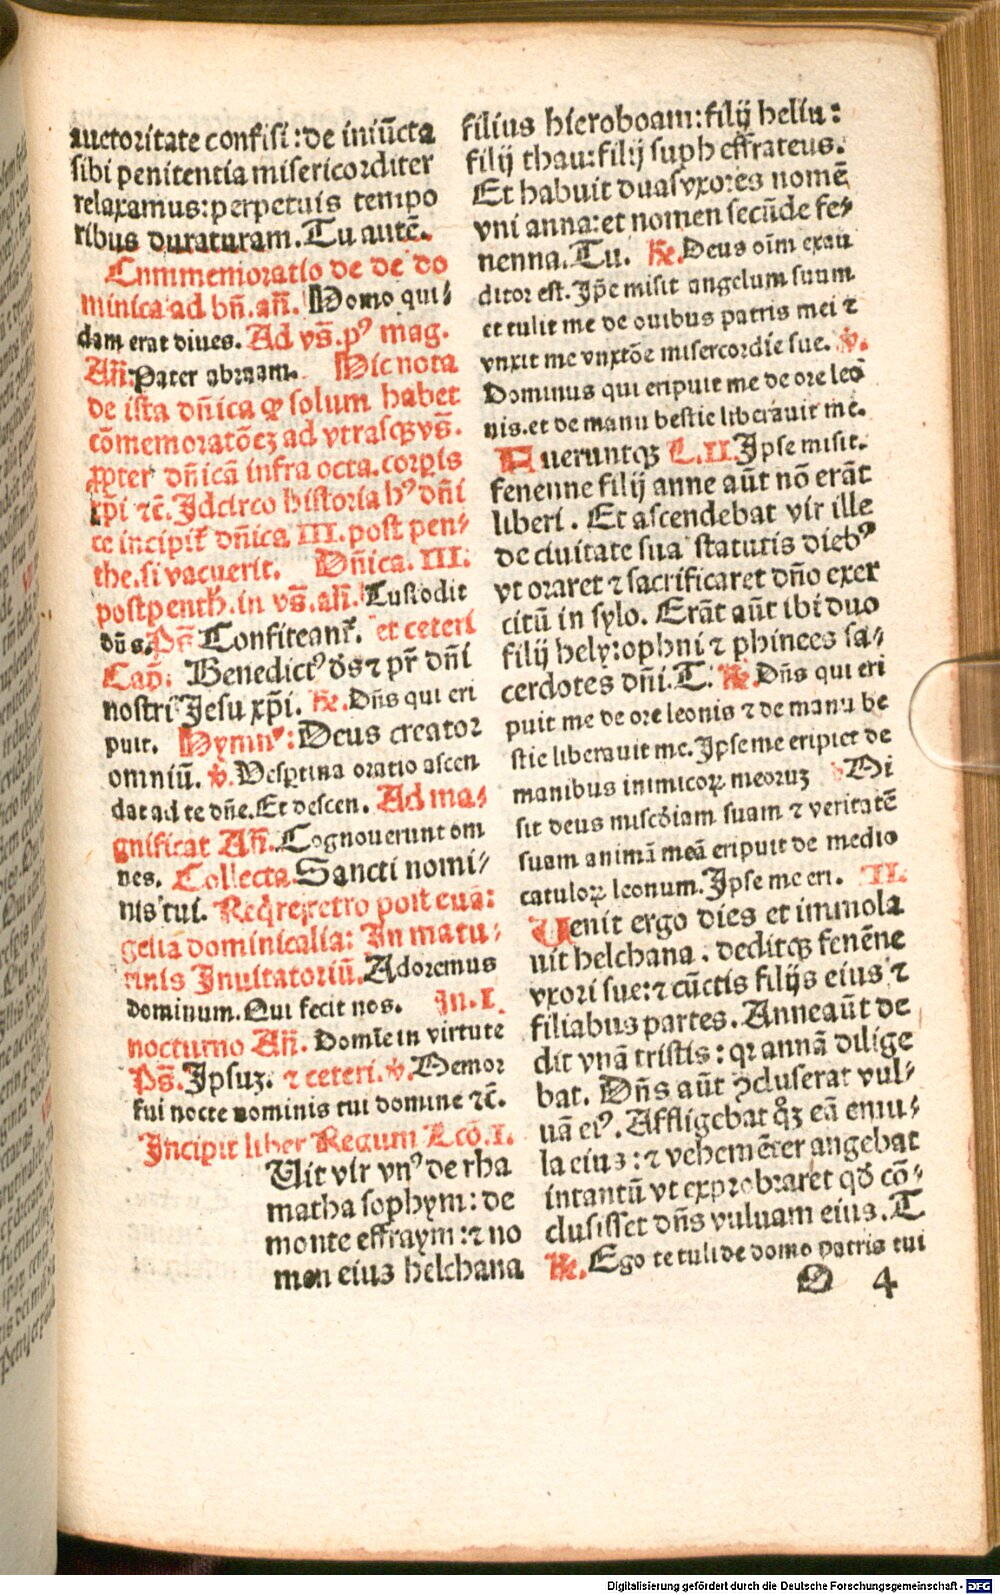 auctoritate confisi: de iniūcta
sibi penitentia misericorditer
relaxamus: perpetuis tempo
ribus duraturam. Tu autē.
Cnmmemoratio de de do
minica ad bn̄. an̄. Homo qui⸗
dam erat diues. Ad vs̄. pꝰ mag.
An̄. Pater abraam. Hic nota
de ista dn̄ica ꝙ solum habet
cōmemoratōeꝫ ad vtrasqꝫ vs̄.
ꝓpter dn̄icā infra octa. corꝑis
xp̄i ⁊c̄. Idcirco historia hꝰ dn̄i
ce incipit̉ dn̄ica III. post pen⸗
the. si vacuerit. Dn̄ica. III.
post penth. in vs̄. an̄. Custodit
dn̄s. Ps̄ Confiteant̉. et ceteri
Cap̄. Benedictꝰ ds̄ ⁊ pr̄ dn̄i
nostri Jesu xp̄i. ℟. Dn̄s qui eri
puit. Hymnꝰ: Deus creator
omniū. ℣. Vesꝑtina oratio ascen
dat ad te dn̄e. Et descen. Ad ma⸗
gnificat An̄. Cognouerunt om
nes. Collecta. Sancti nomi⸗
nis tui. Req̄re retro post euā:
gelia dominicalia: In matu⸗
tinis Inuitatoriū. Adoremus
dominum. Qui fecit nos. In. I.
nocturno An̄. Domīe in virtute
Ps̄. Ipsuꝫ. ⁊ ceteri. ℣. Memor
fui nocte nominis tui domine ⁊c̄.
Incipit liber Regum Lcō. I.
Uit vir vnꝰ de rha
matha sophym: de
monte effraym: ⁊ no
men eius helchana
filius hieroboam: filij heliu:
filij thau: filij suph effrateus.
Et habuit duas vxores nomē
vni anna: et nomen secūde fe⸗
nenna. Tu. ℟. Deus oīm exau
ditor est. Ip̄e misit angelum suum
et tulit me de ouibus patris mei ⁊
vnxit me vnxtōe misercordie sue. ℣.
Dominus qui eripuit me de ore leo
nis. et de manu bestie liberauit me.
Fueruntqꝫ L. II Ipse misit.
fenenne filij anne aūt nō erāt
liberi. Et ascendebat vir ille
de ciuitate sua statutis diebꝰ
vt oraret ⁊ sacrificaret dn̄o exer
citū in sylo. Erāt aūt ibi duo
filij hely: ophni ⁊ phinees sa⸗
cerdotes dn̄i. T. ℟. Dn̄s qui eri
puit me de ore leonis ⁊ de manu be
stie liberauit me. Ipse me eripiet de
manibus inimicoꝝ meoruꝫ ℣ Mi
sit deus miscōiam suam ⁊ veritatē
suam animā meā eripuit de medio
catuloꝝ leonum. Ipse me eri. II.
Uenit ergo dies et immola
uit helchana. deditqꝫ fenēne
vxori sue: ⁊ cūctis filijs eius ⁊
filiabus partes. Anne aūt de
dit vnā tristis: qꝛ annā dilige
bat. Dn̄s aūt ꝯcluserat vul⸗
uā eiꝰ. Affligebat qꝫ eā emu⸗
la eius: ⁊ vehemēter angebat
intantū vt exprobraret qd̄ cō⸗
clusisset dn̄s vuluam eius. T
℟. Ego te tuli de domo patris tui
O 4
Digitalisierung gefördert durch die Deutsche Forschungsgemeinschaft - DFG